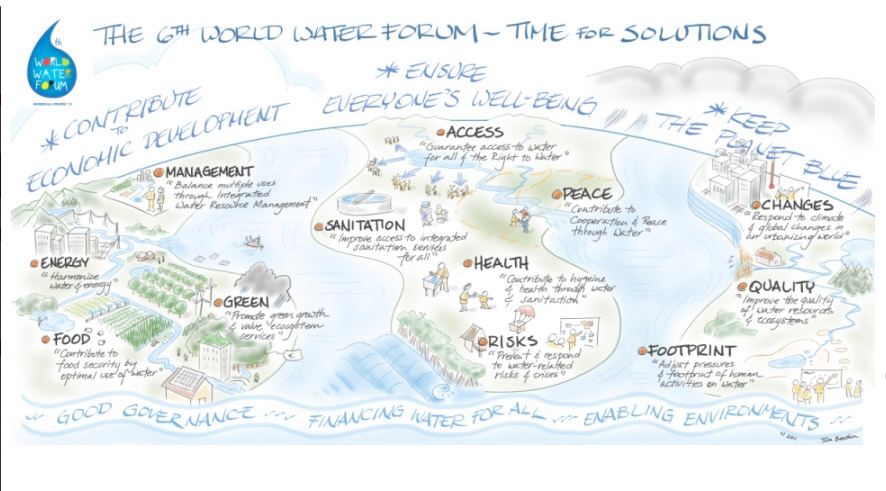 THE 6TH WORLD WATER FORUM ~ TIME for SOLUTIONS
th
WORLD
WATER
FORUM
* CONTRIBUTE
to
ECONOMIC DEVELOPMENT
* ENSURE
EVERYONE'S WELL-BEING
* KEEP
THE PLANET BLUE
MANAGEMENT
"Balance multiple uses
through Integrated
Water Resource Management"
ENERGY
"Harmonize
water & energy"
GREEN
"Promote green growth
& value ecosystem
services"
FOOD
"Contribute to
food security by
optimal use of water"
ACCESS
"Guarantee access to water
for all & the Right to Water"
SANITATION
"Improve access to integrated
sanitation services
for all"
PEACE
"Contribute to
Cooperation & Peace
through Water"
HEALTH
"Contribute to hygeine
& health through water
& sanitation"
RISKS
"Prevent & respond
to water-related
risks & crises"
CHANGES
"Respond to climate
& global changes in
an urbanizing world"
QUALITY
"Improve the quality
of water resources
& ecosystems"
FOOTPRINT
"Adjust pressures
& footprint of human
activities on water"
GOOD GOVERNANCE ~ FINANCING WATER FOR ALL ~ ENABLING ENVIRONMENTS
2011